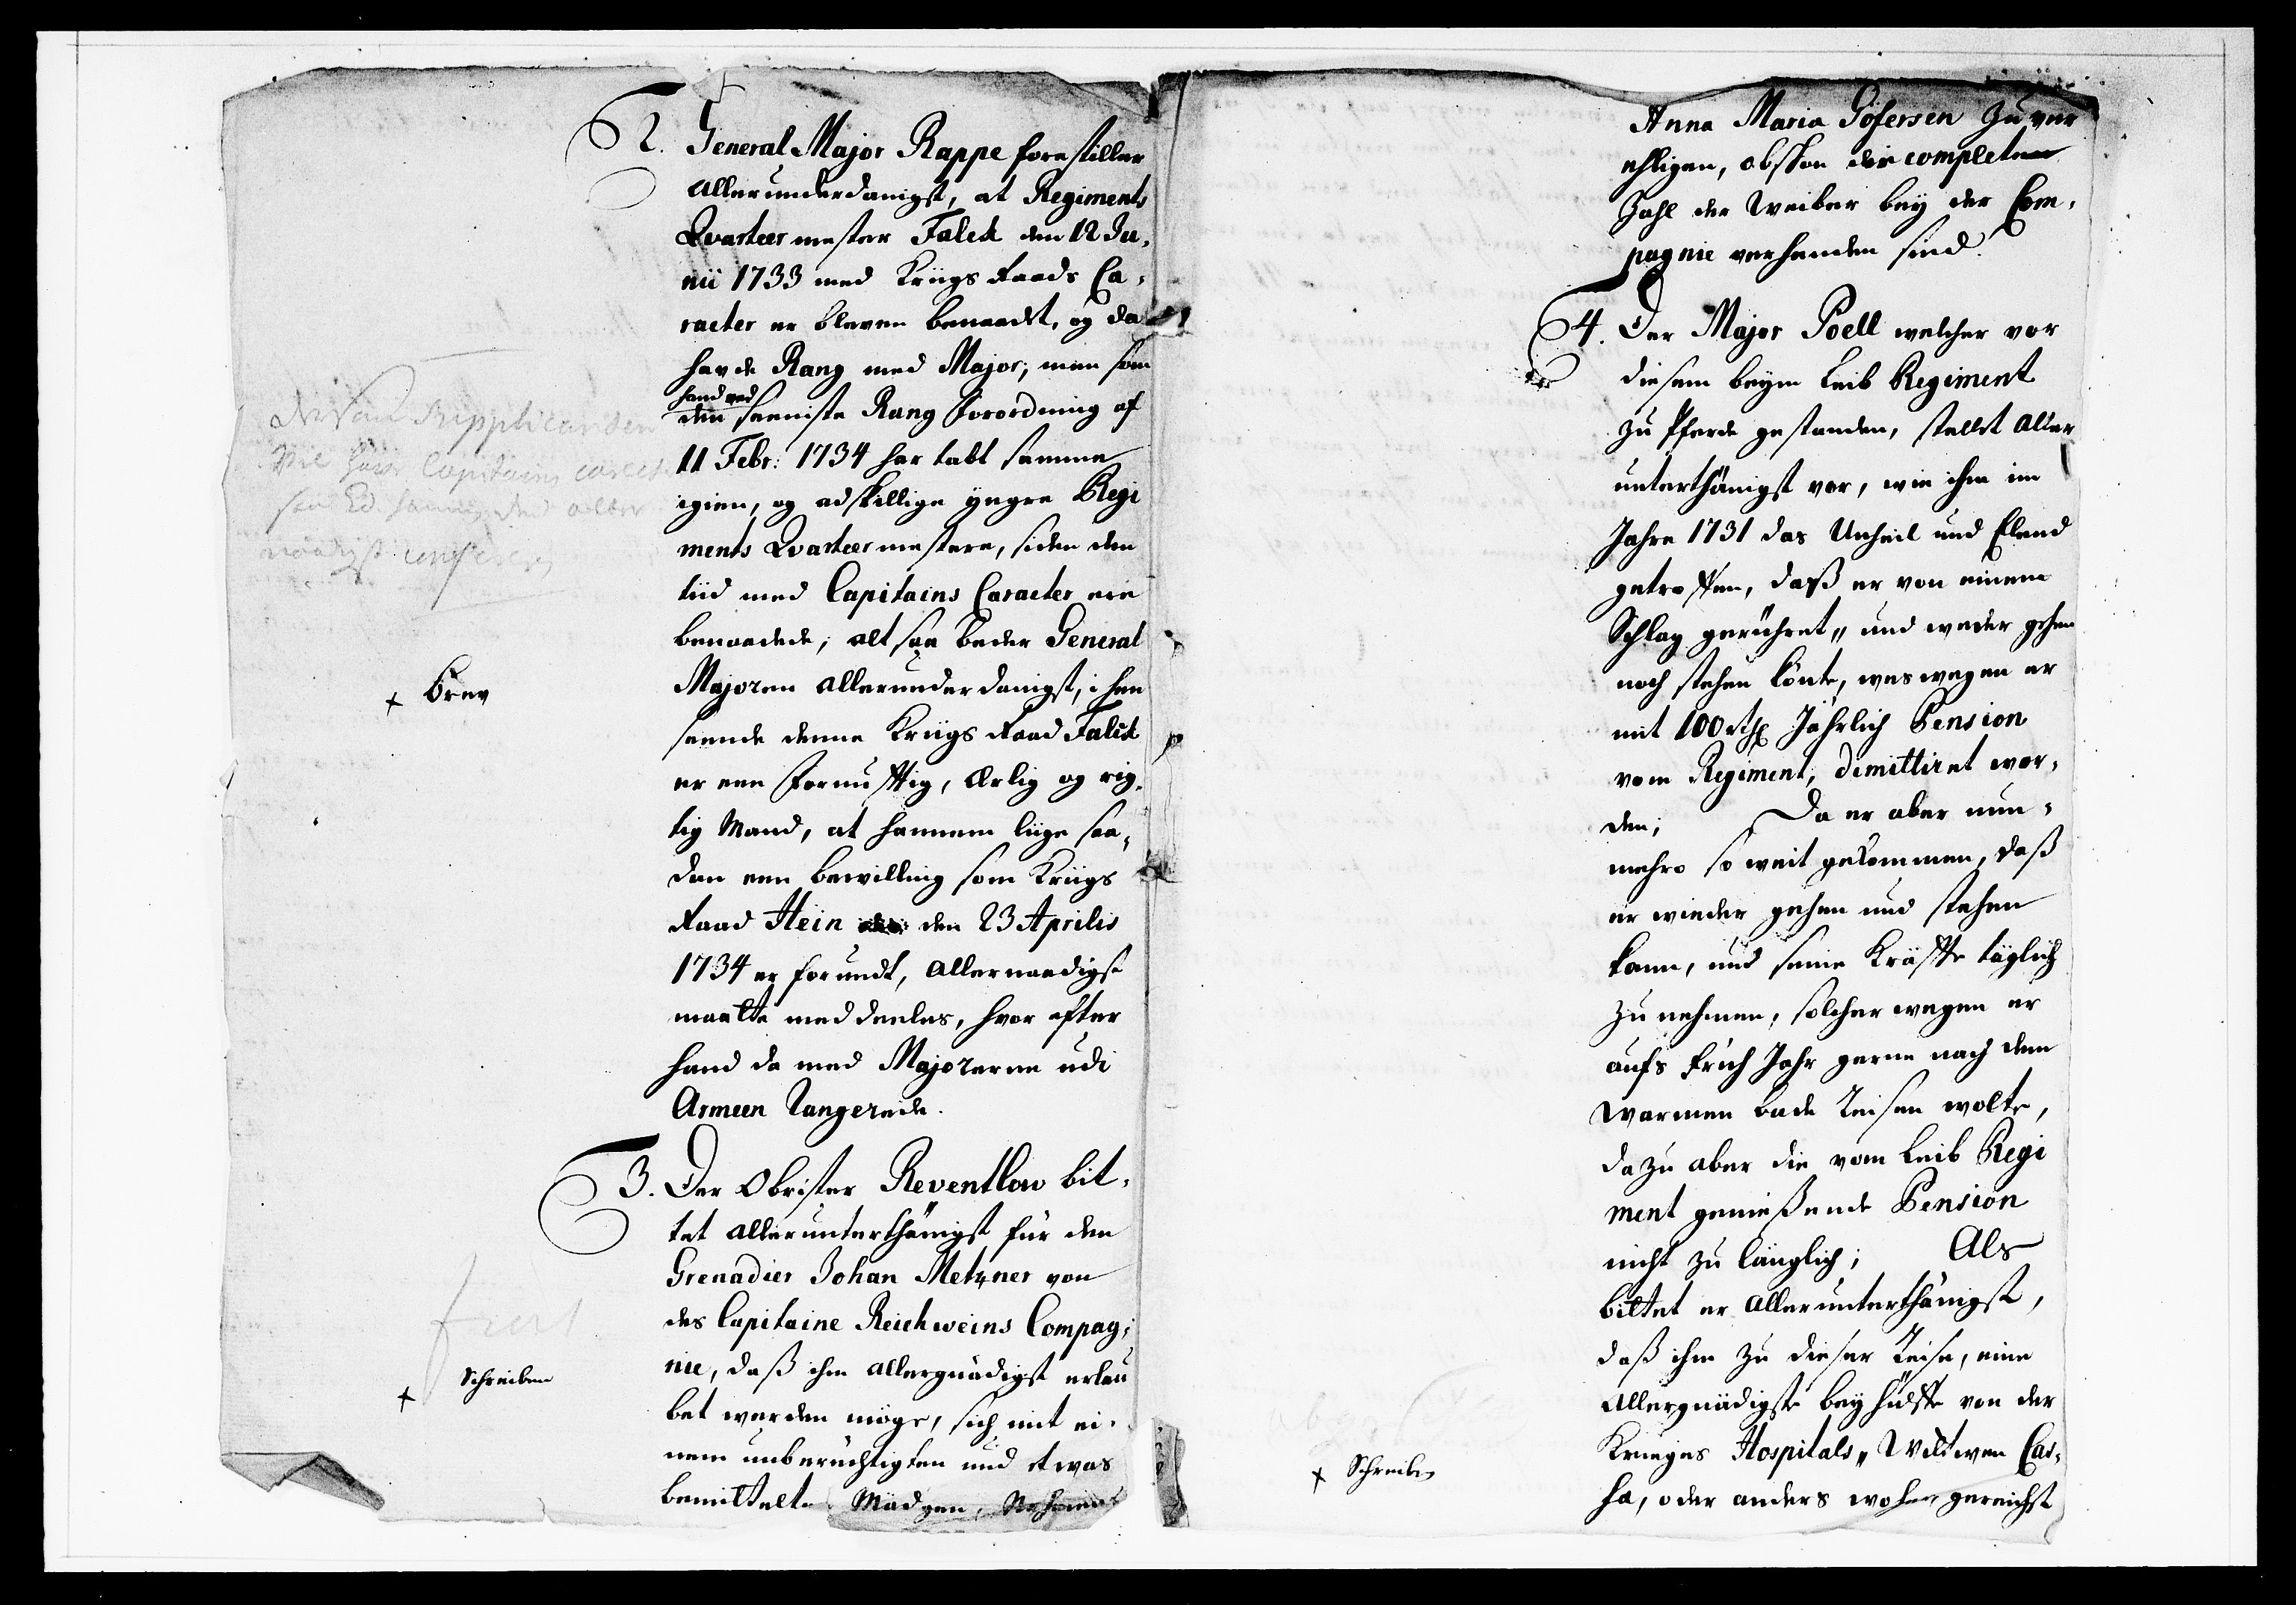 2. General Major Rappe forestiller
allerunderdanigst, at Regiments
Qvarteermester Falck den 12 Ju-
nii 1733 med Kriigs Raads Ca-
racter er bleven benaadet, og da
havde Rang med Major, men som
hand ved
den seeniste Rang Forordning af
11 Febr: 1734 har tabt samme
igien, og adskillige yngre Regi
ments Qvarteermestere, siden den
tiid med Capitains Caracter ere
benaadede; alt saa beder General
Majoren allerunderdanigst, i hen
seende denne Kriigs Raad Falck
er een Fornufftig, ærlig og rig-
tig Mand, at hannem liige saa-
dan een bevilling som Kriigs
Raad Hein den 23 Aprilis
1734 er forundt, allernaadigst
maatte meddeeles, hvor efter
hand da med Majorerne udi
Armeen Rangerede.
Supplicanden
Capitains
+ Brev
3. Der Obrister Reventlow bit-
tet allerunterthänigst für den
Grenadier Johan Metzner von
des Capitaine Reichweins Compag-
nie, daß ihm allergnädigst erlau
bet werden möge, sich mit ei-
nem unberüchtigten und etwas
bemittelte Mädgen, Nahmens
fiat
+ Schreiben
Anna Maria Göfersen zu ver
ehligen, obschon die complete
Zahl der Weiber bey der Com-
pagnie verhanden sind.
4. Der Major Poell welcher vor
diesem beym Leib Regiment
zu Pferde gestanden, stellet aller
unterthänigst vor, wie ihm im
Jahre 1731 das Unheil und Elend
getroffen, daß er von einem
Schlag gerühret, und weder gehen
noch stehen könte, weswegen er
mit 100 rth Jährlich Pension
vom Regiment, dimittiret wor-
den; Da er aber nun-
mehro so weit gekommen, daß
er wieder gehen und stehen
kann, und seine Kräffte täglich
zu nehmen, solcher wegen er
aufs Früh Jahr gerne nach dem
warmen bade Reisen wolte,
dazu aber die vom Leib Regi
ment genießende Pension
nicht zu länglich; Als
bittet er allerunterthänigst,
daß ihm zu dieser Reise, eine
allergnädigste beyhülffe von der
Krieges Hospitals, Wittwen Cas-
ha, oder anders woher gereicht
+ Schreiben